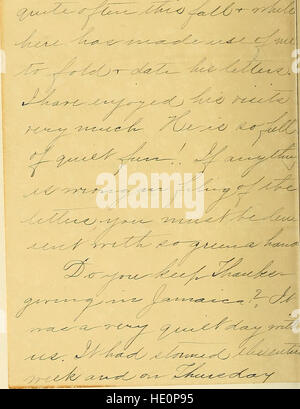 quite often this fall & while
here has made use of me
to fold & date his letters.
I have enjoyed his visits
very much He is so full
of quiet fun!. If anything
is wrong in filing of the
letters you must be len
ient with so green a hand
Do you keep Thanks-
giving in Jamaica? It
was a very quiet day with
us. It had stormed the entire
week and on Thursday
alamy stock photo
HE0P95